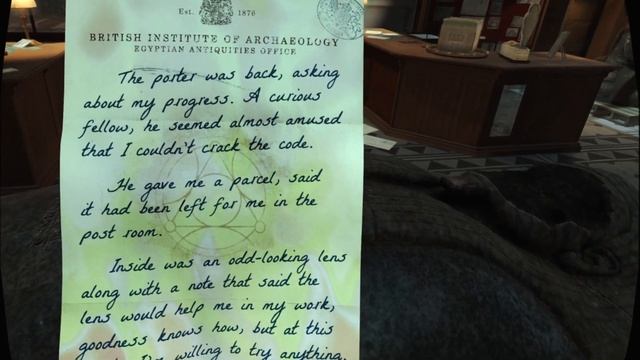 Est. 1876
BRITISH INSTITUTE OF ARCHAEOLOGY
EGYPTIAN ANTIQUITIES OFFICE
The porter was back, asking
about my progress. A curious
fellow, he seemed almost amused
that I couldn't crack the code.
He gave me a parcel, said
it had been left for me in the
post room.
Inside was an odd-looking lens
along with a note that said the
lens would help me in my work,
goodness knows how, but at this
I'm willing to try anything.